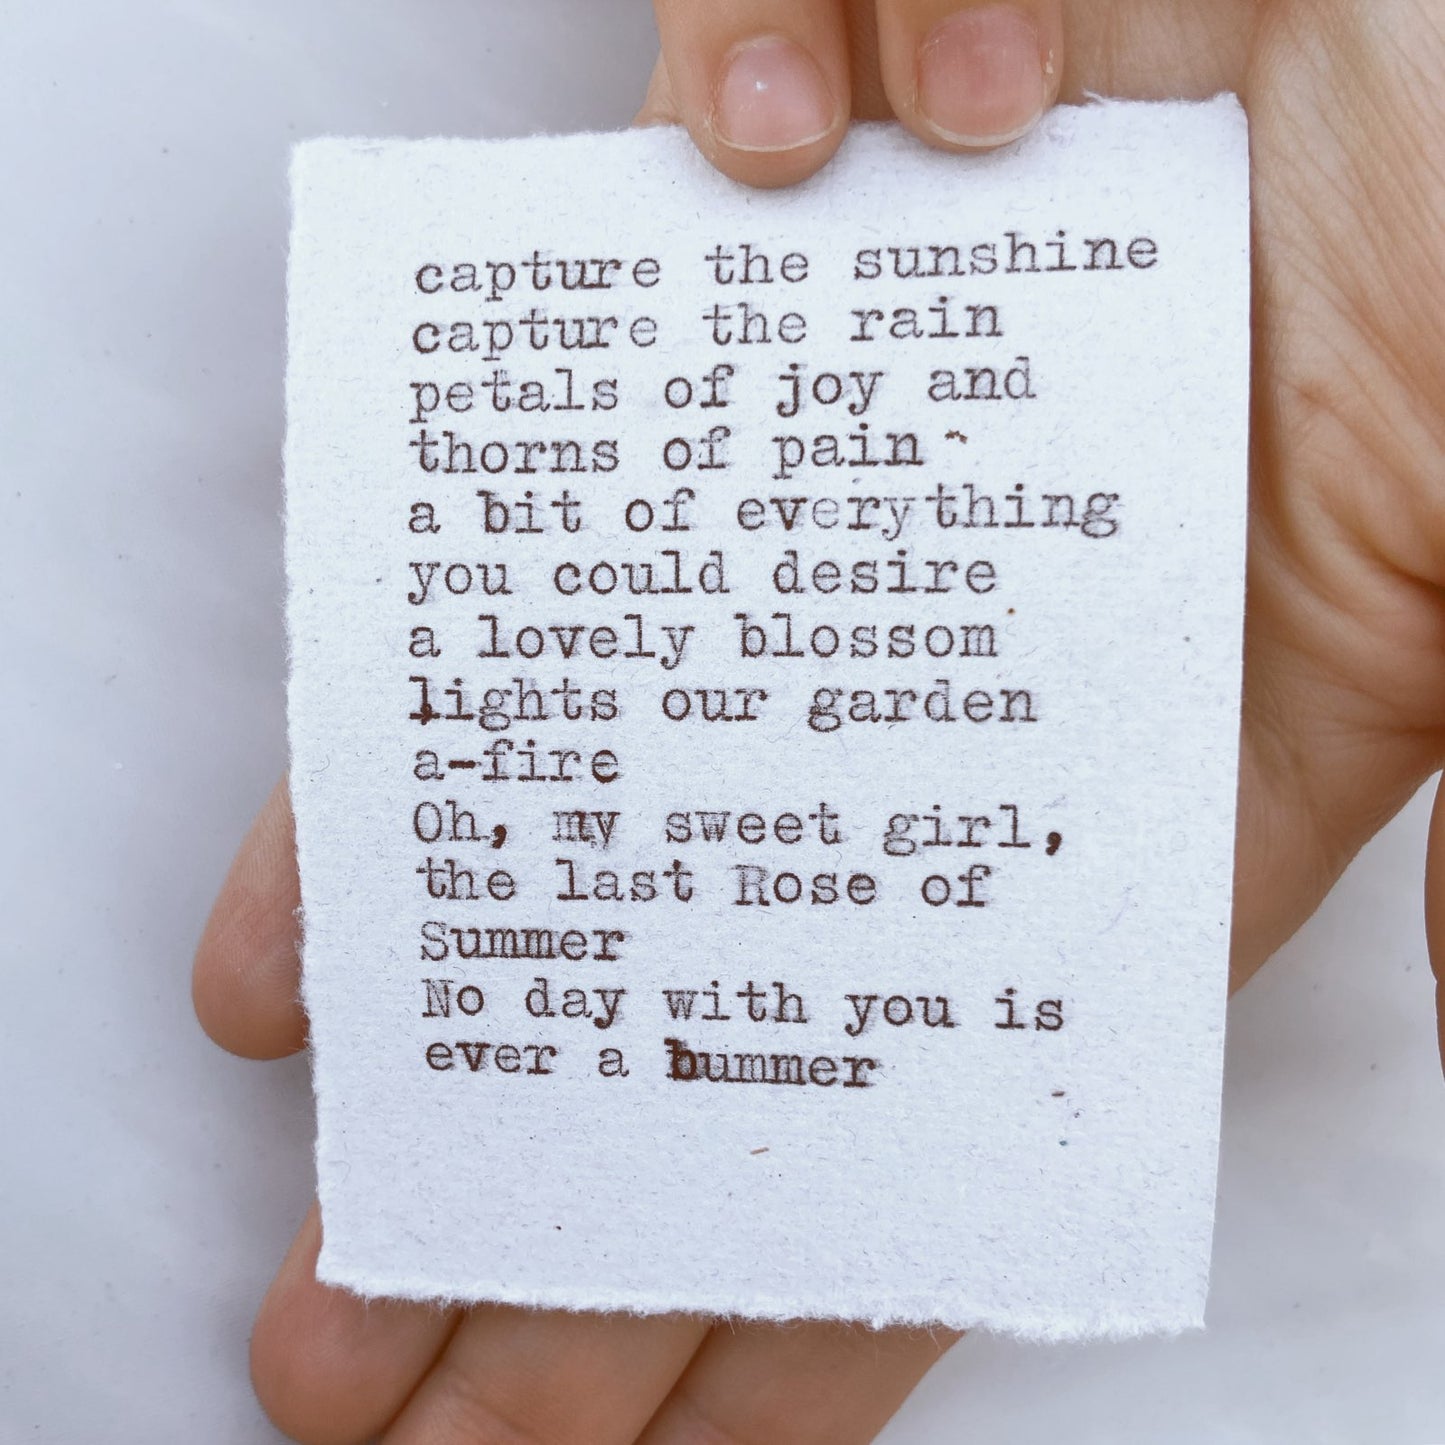 capture the sunshine
capture the rain
petals of joy and
thorns of pain
a bit of everything
you could desire
a lovely blossom
lights our garden
a-fire
Oh, my sweet girl,
the last Rose of
Summer
No day with you is
ever a bummer